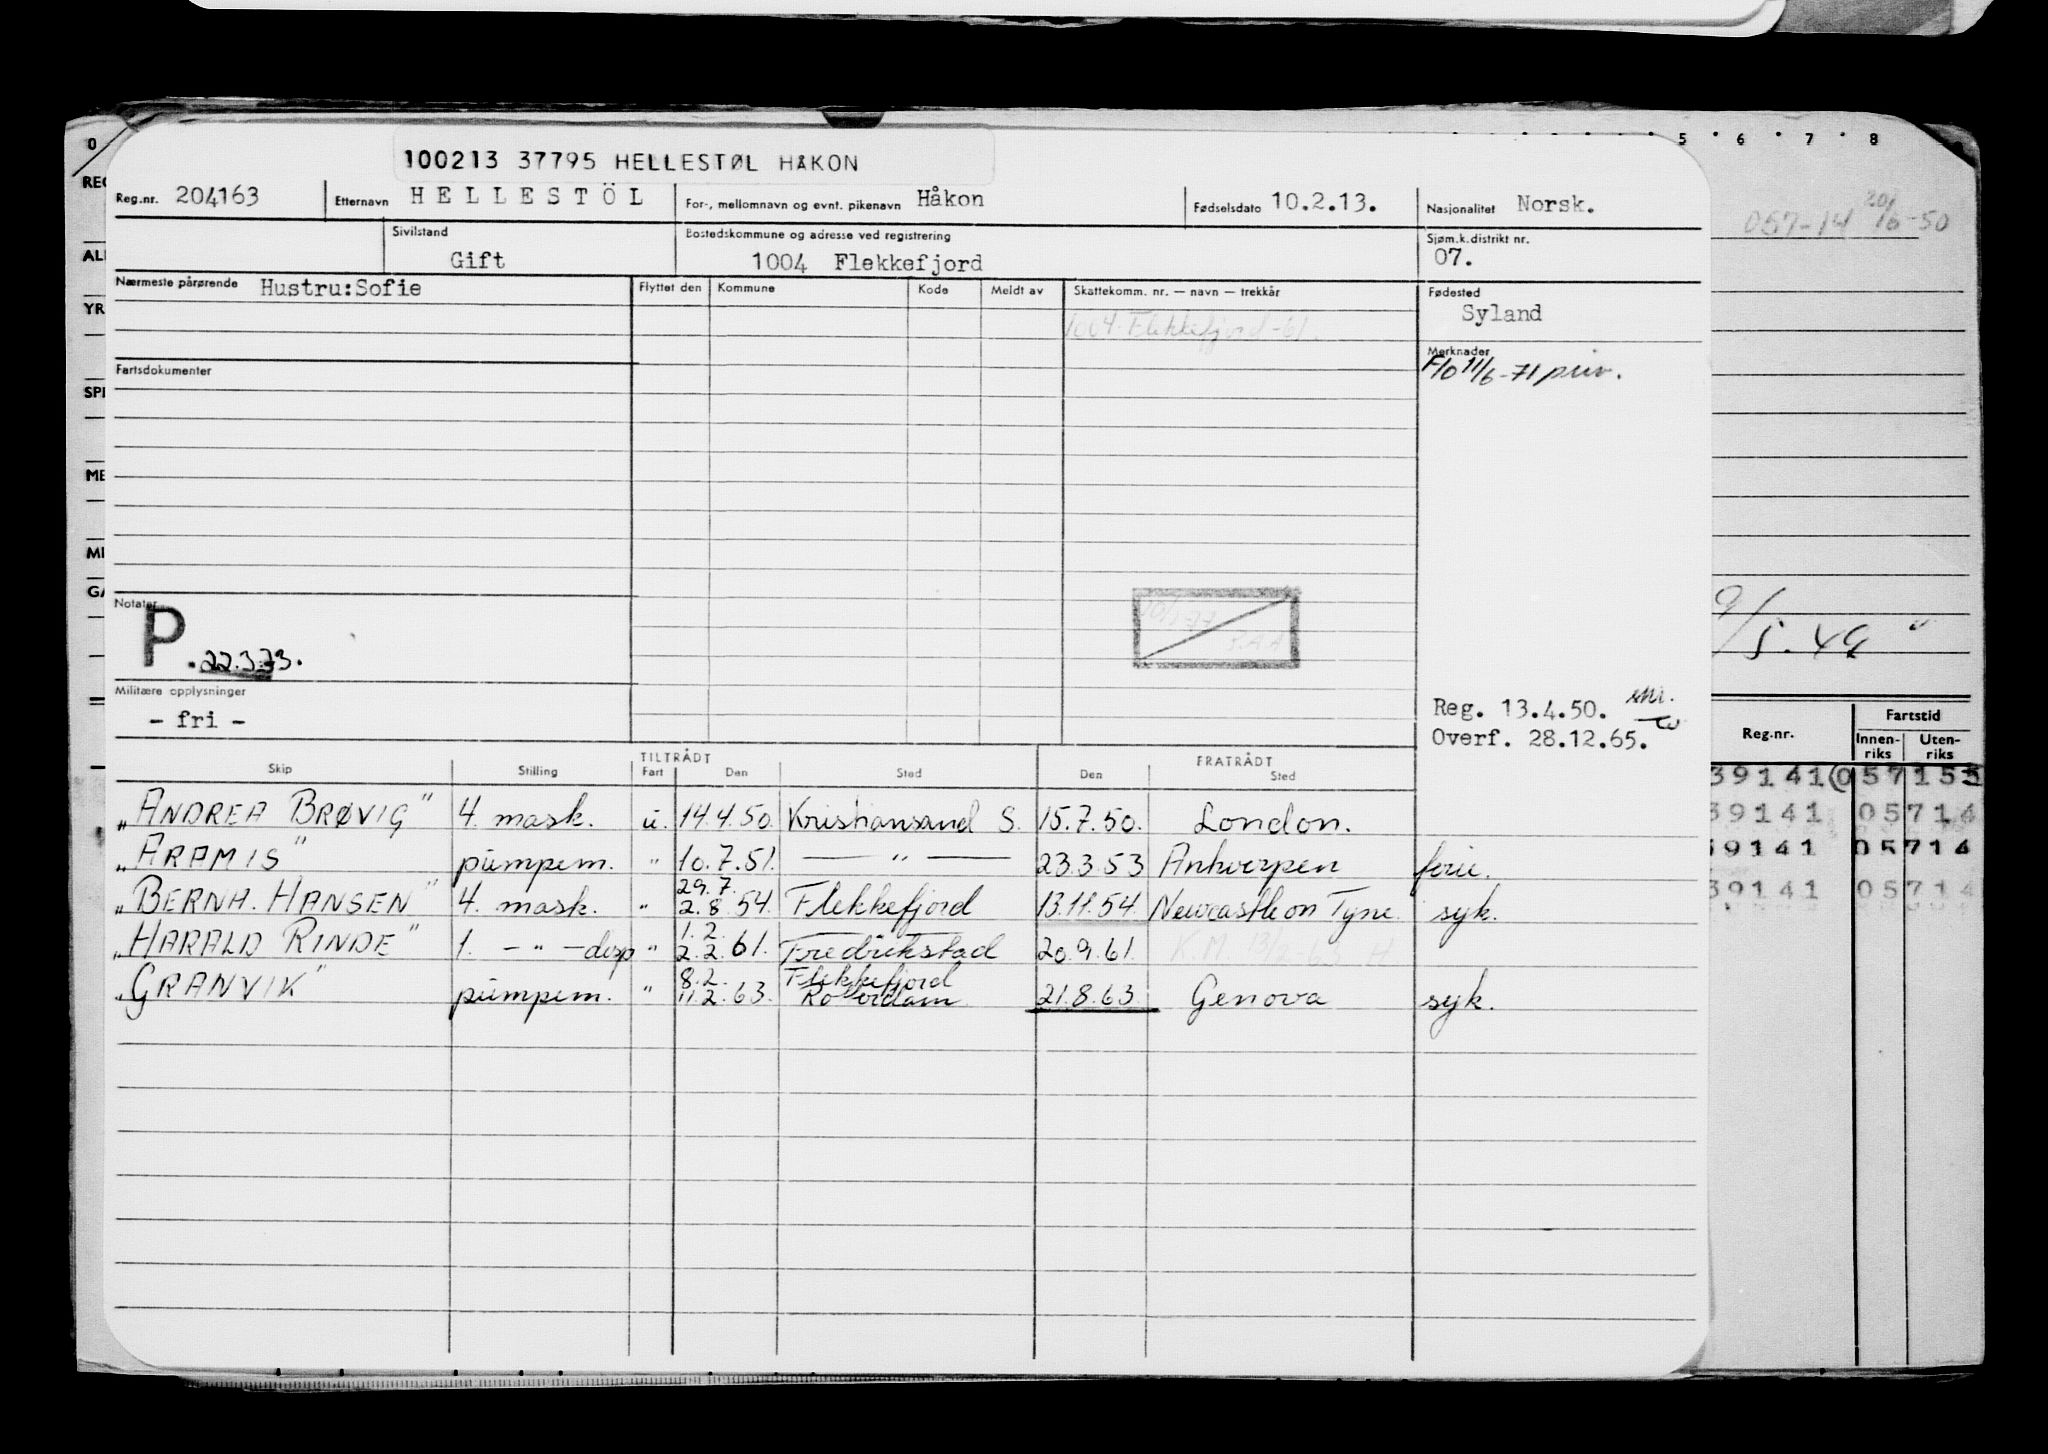 0 5 6 7 8
100213 37795 HELLESTØL HÅKON
Reg.nr. 204163 Etternavn HELLESTÖL For-, mellomnavn og evnt. pikenavn Håkon Fødselsdato 10.2.13. Nasjonalitet Norsk.
Sivilstand Gift Bostedskommune og adresse ved registrering 1004 Flekkefjord Sjøm.k.distrikt nr. 07.
Nærmeste pårørende Hustru:Sofie Flyttet den Kommune Kode Meldt av Skattekomm. nr. — navn — trekkår Fødested Syland
1004 Flekkefjord -61.
Fartsdokumenter
Merknader
11/6-71 priv.
057-14 20/6-50
Notater
P. 22.3.73.
Militære opplysninger
- fri -
Reg. 13.4.50.
Overf. 28.12.65.
9/5.49 "
Reg.nr. Fartstid
Innen-riks Uten-riks
Skip Stilling TILTRÅDT Fart Den Sted FRATRÅDT Den Sted
„ANDREA BRØVIG" 4. mask. u. 14.4.50. Kristiansand S. 15.7.50. London.
„ARAMIS" pumpem. " 10.7.51. — " — 23.3.53 Antwerpen ferie.
„BERNH. HANSEN" 4. mask. " 29.7. 2.8.54. Flekkefjord 13.11.54. Newcastle on Tyne. syk.
„HARALD RINDE" 1. — " — disp " 1.2. 2.2.61. Fredrikstad 20.9.61. K.M. 13/2-63 H
„GRANVIK" pumpem. " 8.2. 11.2.63. Flekkefjord Rotterdam 21.8.63. Genova syk.
39141 05715
39141 05714
39141 05714
39141 05714